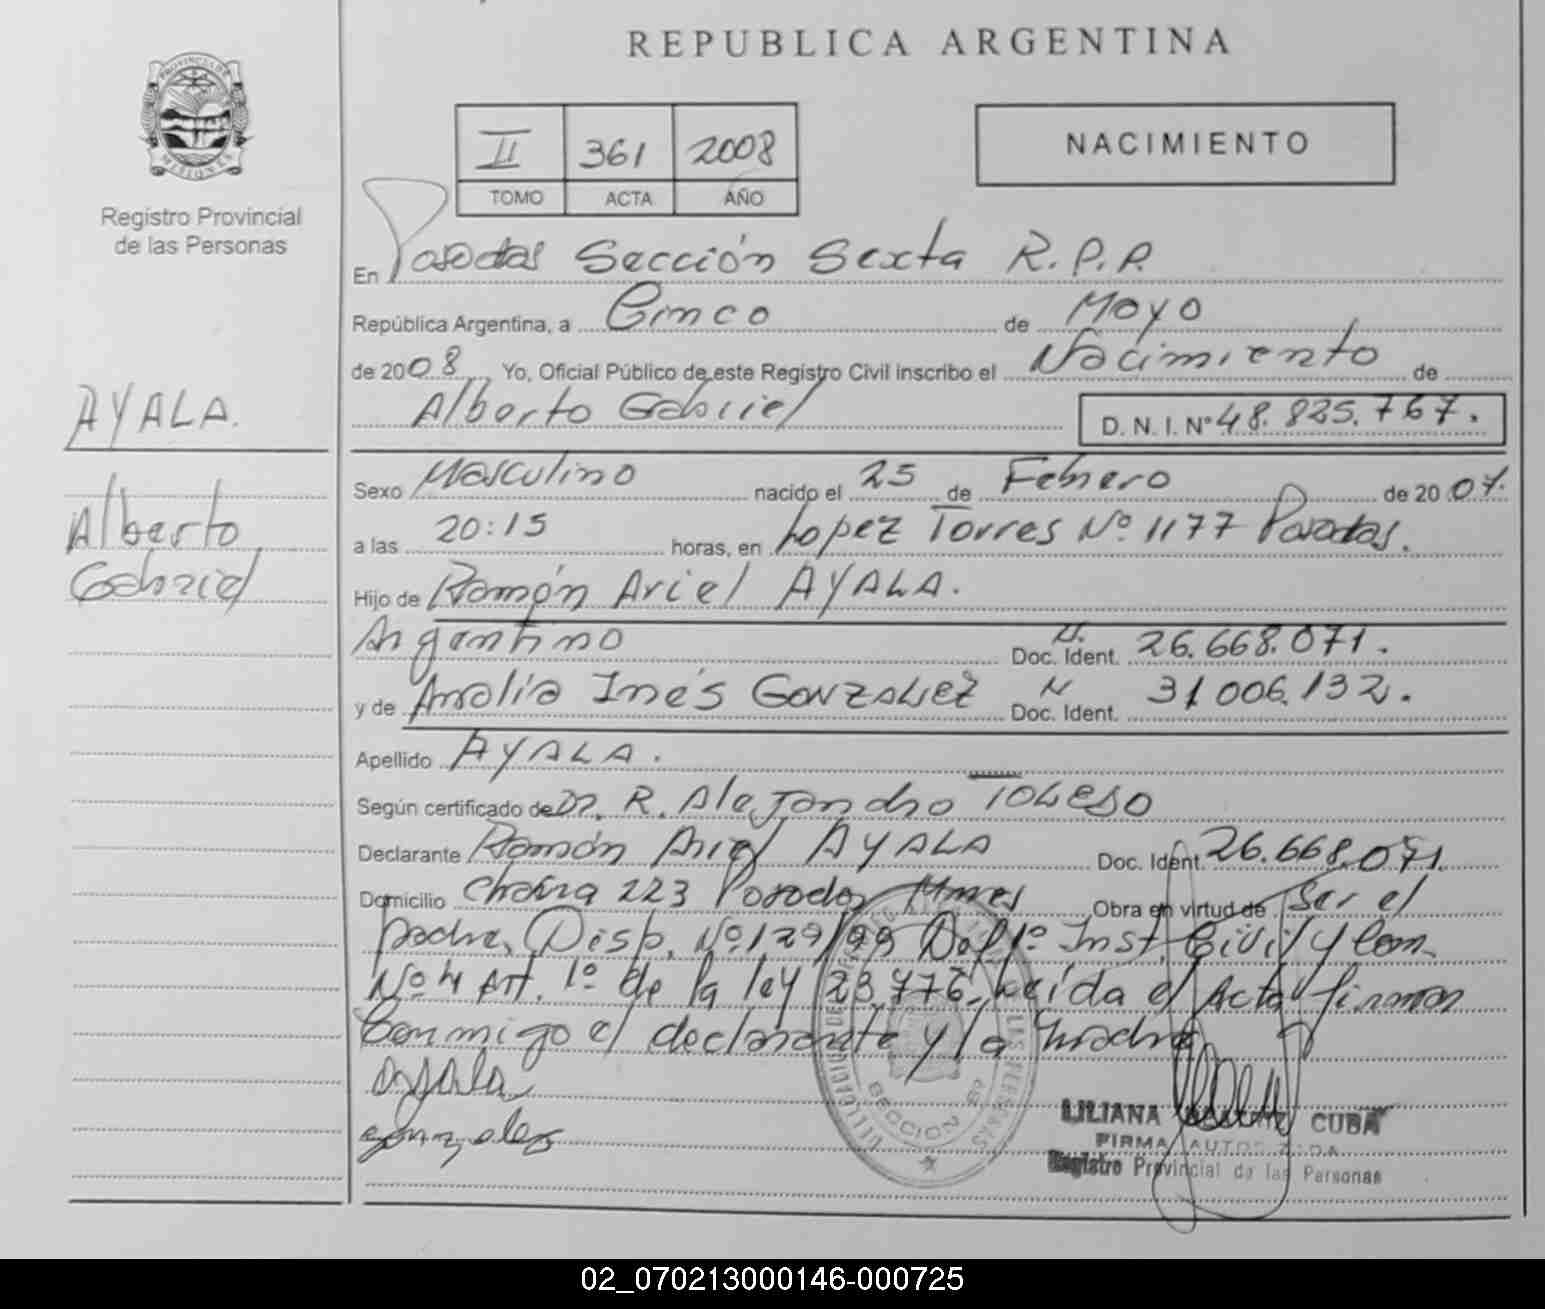 REPUBLICA ARGENTINA
PROVINCIA DE
MISIONES
Registro Provincial
de las Personas
II 361 2008
TOMO ACTA AÑO
NACIMIENTO
En Posadas Sección Sexta R.P.P.
República Argentina, a Cinco de Mayo
de 2008 Yo, Oficial Público de este Registro Civil inscribo el Nacimiento de
Alberto Gabriel D. N. I. Nº 48.825.767.
AYALA.
Alberto
Gabriel
Sexo Masculino nacido el 25 de Febrero de 2007.
a las 20:15 horas, en Lopez Torres Nº 1177 Posadas.
Hijo de Ramón Ariel AYALA.
Argentino Doc. Ident. 26.668.071.
y de Analia Inés GONZALEZ Doc. Ident. 31 006.132.
Apellido AYALA.
Según certificado de Dr. R. Alejandro TOLEDO
Declarante Ramón Ariel AYALA Doc. Ident. 26.668.071.
Domicilio Chacra 223 Posadas Mnes Obra en virtud de Ser el
padre, Disp. Nº 129/99 Del 1º Inst. Civil y Com.
Nº 4 Art. 1º de la ley 23.776. Leída el Acta firman
Conmigo el declarante y la madre
Ayala
Gonzalez
SECCION 6ª
LILIANA CUBA
FIRMA AUTORIZADA
Registro Provincial de las Personas
02_070213000146-000725